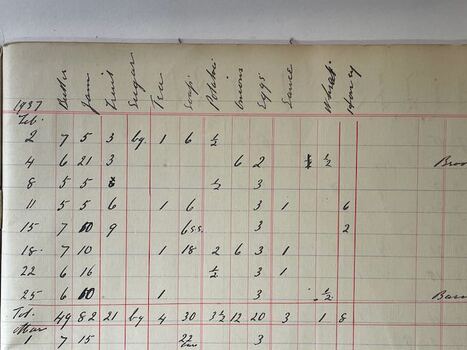 1937 Butter Jam Fruit Sugar Tea Soap Onions Eggs Sauce Wheat Honey
Feb.
2 7 5 3 by. 1 6 ½
4 6 21 3 6 2 ½ Broo
8 5 5 ½ 3
11 5 5 6 1 6 3 1 6
15 7 10 9 6 3 2
18 7 10 1 18 2 6 3 1
22 6 16 ½ 3 1
25 6 10 1 3 ½
Tot. 49 82 21 by 4 30 3½ 12 20 3 1 8
Mar
1 7 15 22 3